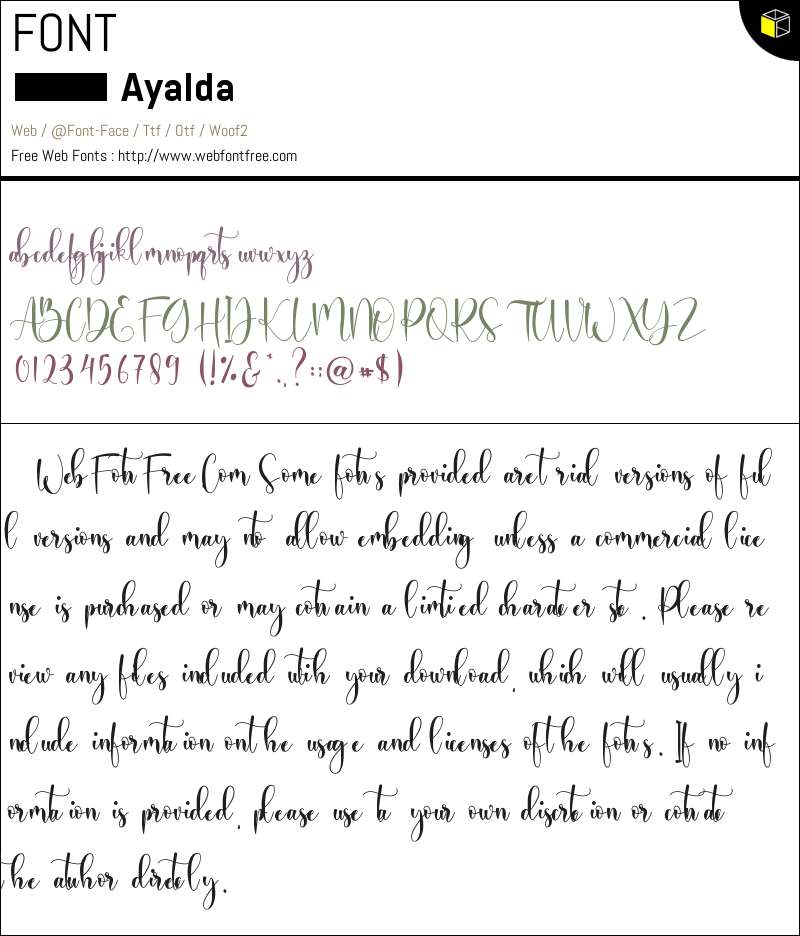 FONT
Ayalda
Web / @Font-Face / Ttf / Otf / Woof2
Free Web Fonts : http://www.webfontfree.com
abcdefghijklmnopqrstuvwxyz
ABCDEFGHIJKLMNOPQRSTUVWXYZ
0123456789 (!%&*.,?::@#$)
Web Font Free Com Some fonts provided are trial versions of ful
l versions and may not allow embedding unless a commercial lice
nse is purchased or may contain a limited character set. Please re
view any files included with your download, which will usually i
nclude information on the usage and licenses of the fonts. If no inf
ormation is provided, please use at your own discretion or contact t
he author directly.